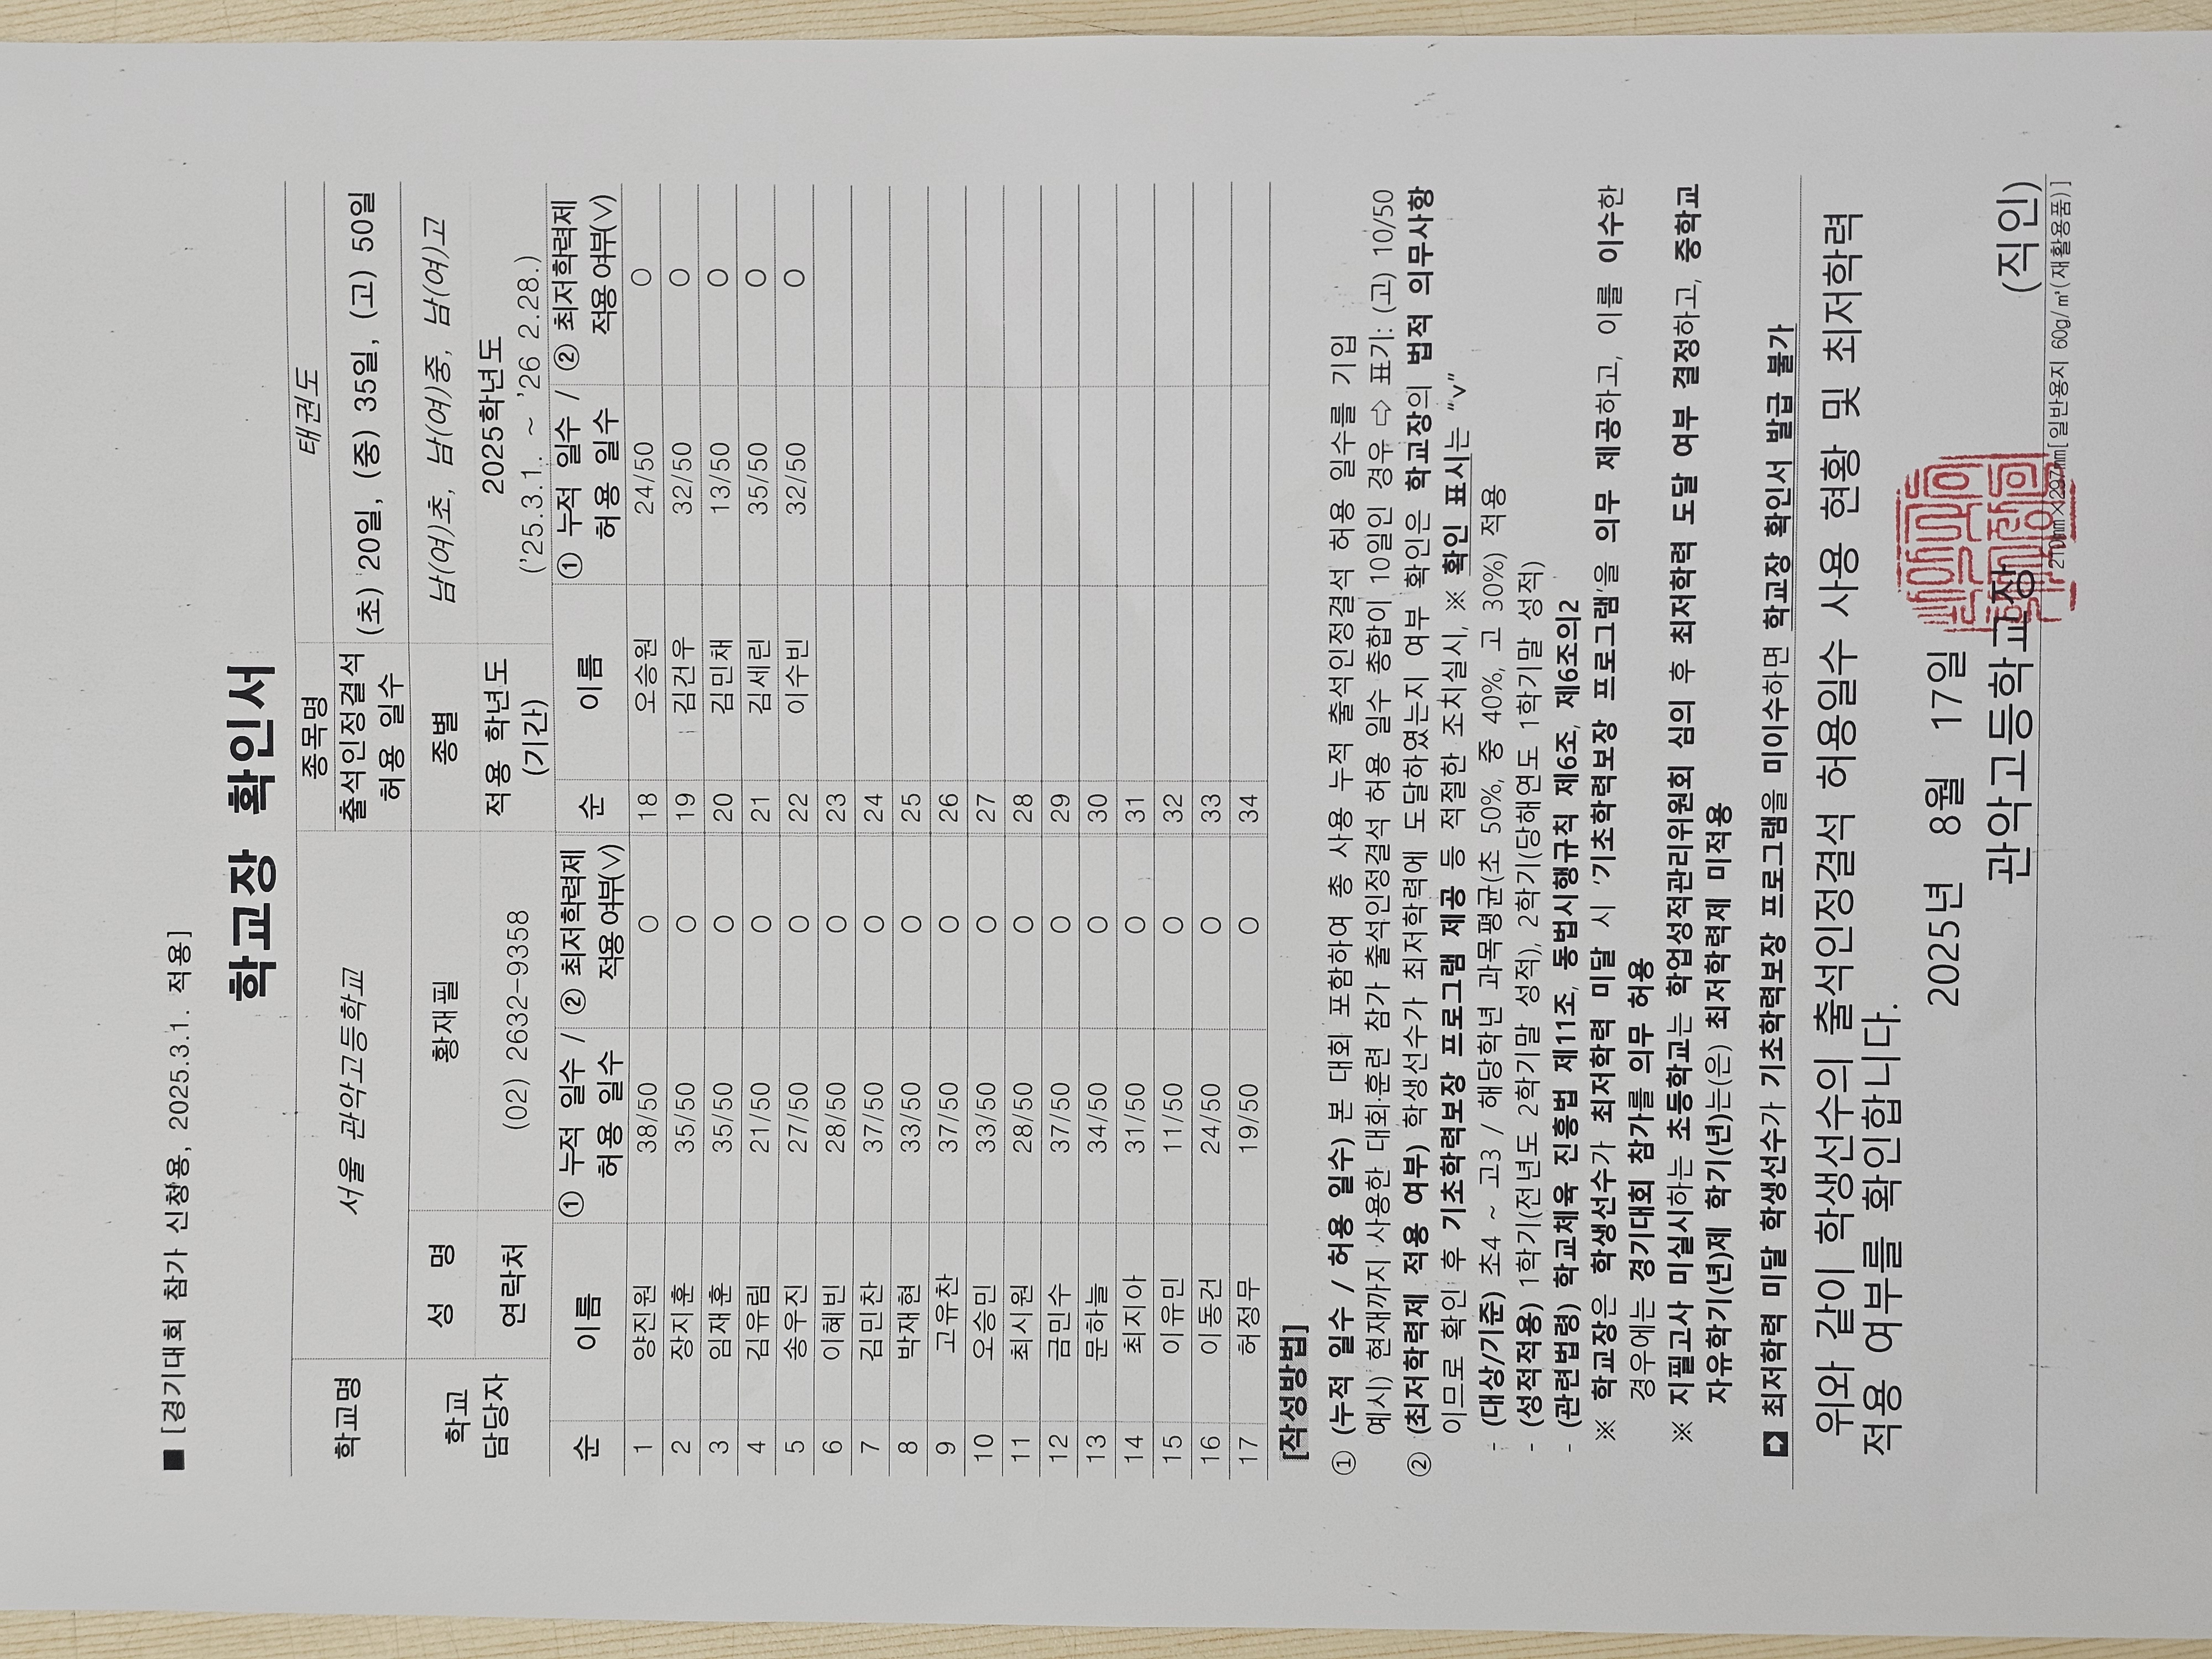 ■ [경기대회 참가 신청용, 2025.3.1. 적용]
학교장 확인서
학교명 서울 관악고등학교 종목명 태권도
출석인정결석 허용 일수 (초) 20일, (중) 35일, (고) 50일
학교 담당자 성 명 황재필 종별 남(여)초, 남(여)중, 남(여)고
연락처 (02) 2632-9358 적용 학년도 (기간) 2025학년도 ('25.3.1. ~ '26 2.28.)
순 이름 ① 누적 일수 / 허용 일수 ② 최저학력제 적용여부(V) 순 이름 ① 누적 일수 / 허용 일수 ② 최저학력제 적용여부(V)
1 양진원 38/50 O 18 오승원 24/50 O
2 장지훈 35/50 O 19 김건우 32/50 O
3 임재훈 35/50 O 20 김민채 13/50 O
4 김유림 21/50 O 21 김세린 35/50 O
5 송우진 27/50 O 22 이수빈 32/50 O
6 이혜빈 28/50 O 23
7 김민찬 37/50 O 24
8 박재현 33/50 O 25
9 고유찬 37/50 O 26
10 오승민 33/50 O 27
11 최시원 28/50 O 28
12 금민수 37/50 O 29
13 문하늘 34/50 O 30
14 최지아 31/50 O 31
15 이유민 11/50 O 32
16 이동건 24/50 O 33
17 허정무 19/50 O 34
[작성방법]
① (누적 일수 / 허용 일수) 본 대회 포함하여 총 사용 누적 출석인정결석 허용 일수를 기입
예시) 현재까지 사용한 대회·훈련 참가 출석인정결석 허용 일수 총합이 10일인 경우 ⇨ 표기: (고) 10/50
② (최저학력제 적용 여부) 학생선수가 최저학력에 도달하였는지 여부 확인은 학교장의 법적 의무사항
이므로 확인 후 기초학력보장 프로그램 제공 등 적절한 조치실시, ※ 확인 표시는 “v”
- (대상/기준) 초4 ~ 고3 / 해당학년 과목평균(초 50%, 중 40%, 고 30%) 적용
- (성적적용) 1학기(전년도 2학기말 성적), 2학기(당해연도 1학기말 성적)
- (관련법령) 학교체육 진흥법 제11조, 동법시행규칙 제6조, 제6조의2
※ 학교장은 학생선수가 최저학력 미달 시 '기초학력보장 프로그램'을 의무 제공하고, 이를 이수한
경우에는 경기대회 참가를 의무 허용
※ 지필고사 미실시하는 초등학교는 학업성적관리위원회 심의 후 최저학력 도달 여부 결정하고, 중학교
자유학기(년)제 학기(년)는(은) 최저학력제 미적용
➡ 최저학력 미달 학생선수가 기초학력보장 프로그램을 미이수하면 학교장 확인서 발급 불가
위와 같이 학생선수의 출석인정결석 허용일수 사용 현황 및 최저학력
적용 여부를 확인합니다.
2025년 8월 17일
관악고등학교장 (직인)
210㎜×297㎜[일반용지 60g/㎡(재활용품)]